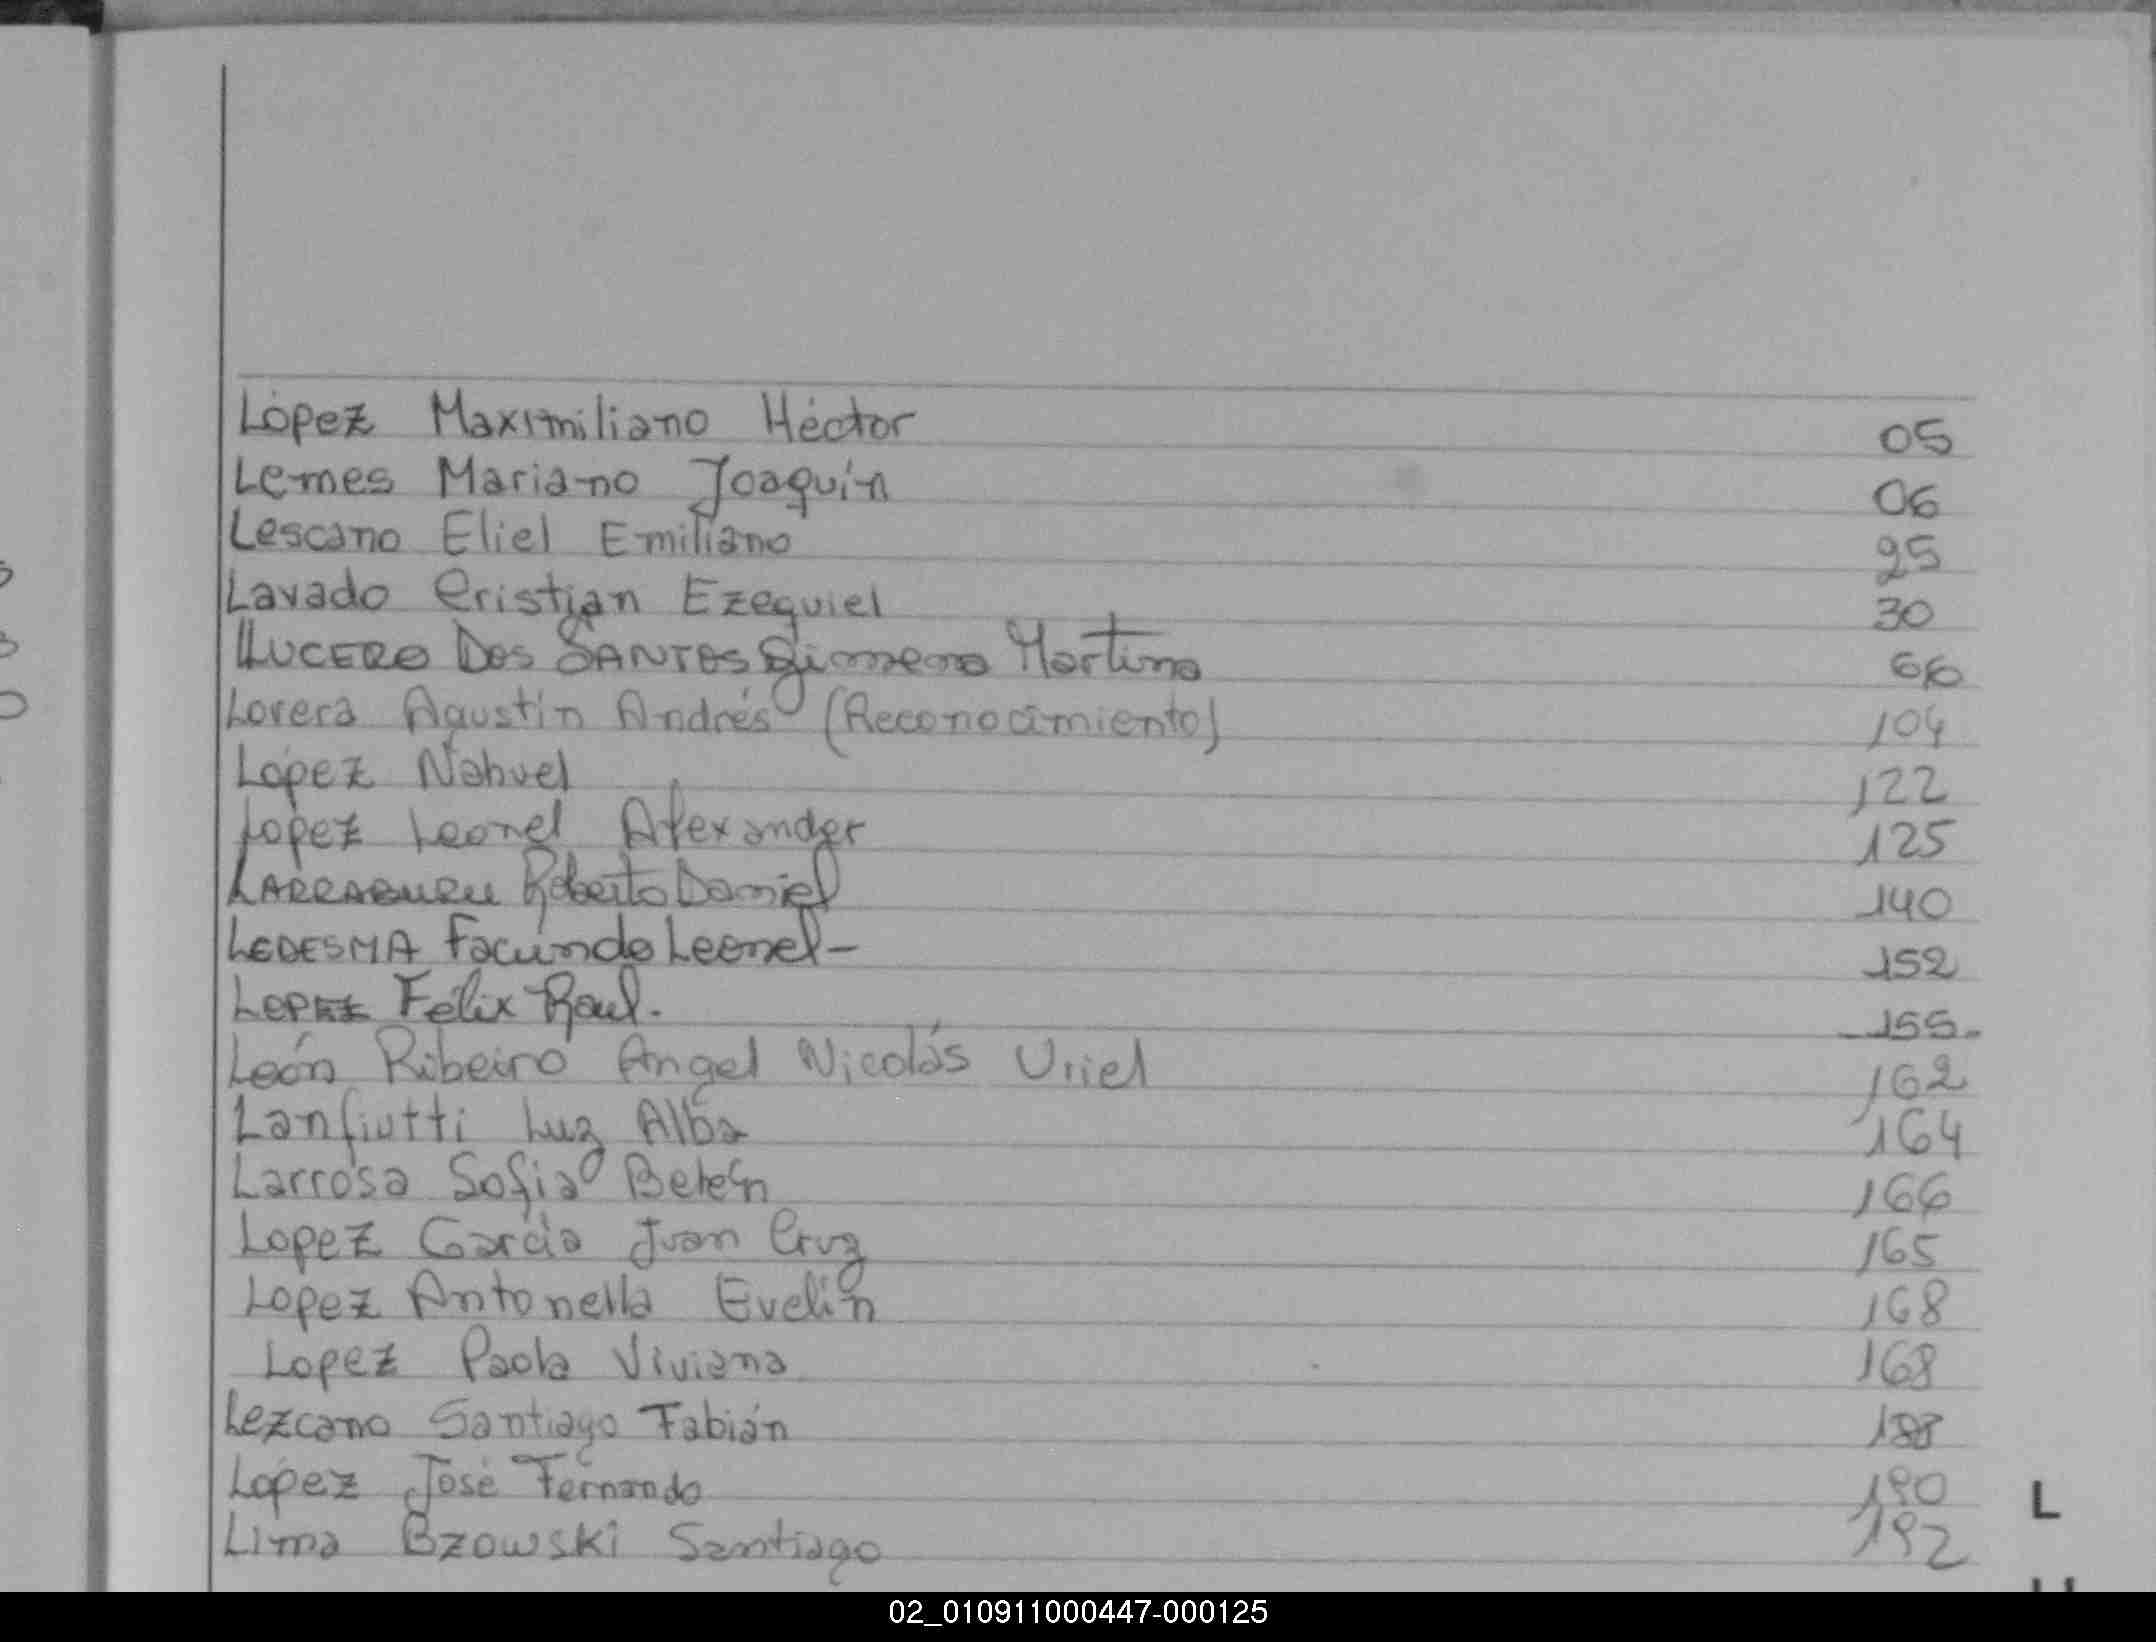 López Maximiliano Héctor 05
Lemes Mariano Joaquín 06
Lescano Eliel Emiliano 25
Lavado Cristian Ezequiel 30
LUCERO DOS SANTOS Gimena Martina 66
Lovera Agustín Andrés (Reconocimiento) 104
López Nahuel 122
Lopez Leonel Alexander 125
LARRABURU Roberto Daniel 140
LEDESMA Facundo Leonel - 152
LOPEZ Félix Raul. 155.
León Ribeiro Angel Nicolás Uriel 162
Lanfiutti Luz Alba 164
Larrosa Sofia Belén 166
Lopez García Juan Cruz 165
Lopez Antonella Evelin 168
Lopez Paola Viviana 168
Lezcano Santiago Fabián 188
López José Fernando 190
Lima Bzowski Santiago 192
L
02_010911000447-000125